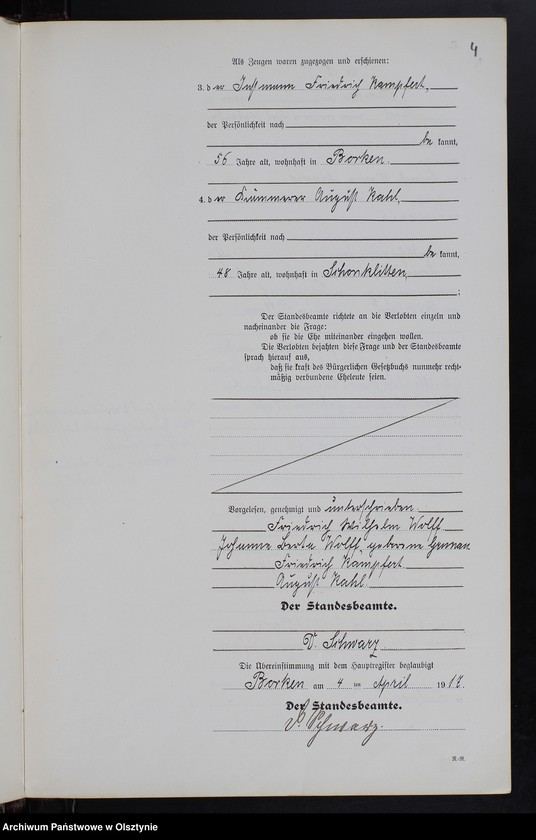 4
Als Zeugen waren zugezogen und erschienen:
3. der Instmann Friedrich Kampfert,
der Persönlichkeit nach
bekannt,
56 Jahre alt, wohnhaft in Borken
4. der Kämmerer August Kahl,
der Persönlichkeit nach
bekannt,
48 Jahre alt, wohnhaft in Schönklitten,
;
Der Standesbeamte richtete an die Verlobten einzeln und
nacheinander die Frage:
ob sie die Ehe miteinander eingehen wollen.
Die Verlobten bejahten diese Frage und der Standesbeamte
sprach hierauf aus,
daß sie kraft des Bürgerlichen Gesetzbuchs nunmehr recht-
mäßig verbundene Eheleute seien.
Vorgelesen, genehmigt und unterschrieben
Friedrich Wilhelm Wolff
Johanna Berta Wolff, geborene
Friedrich Kampfert
August Kahl
Der Standesbeamte.
Schwarz
Die Übereinstimmung mit dem Hauptregister beglaubigt
Borken am 4 ten April 1917.
Der Standesbeamte.
Schwarz.
R.-R.
Archiwum Państwowe w Olsztynie